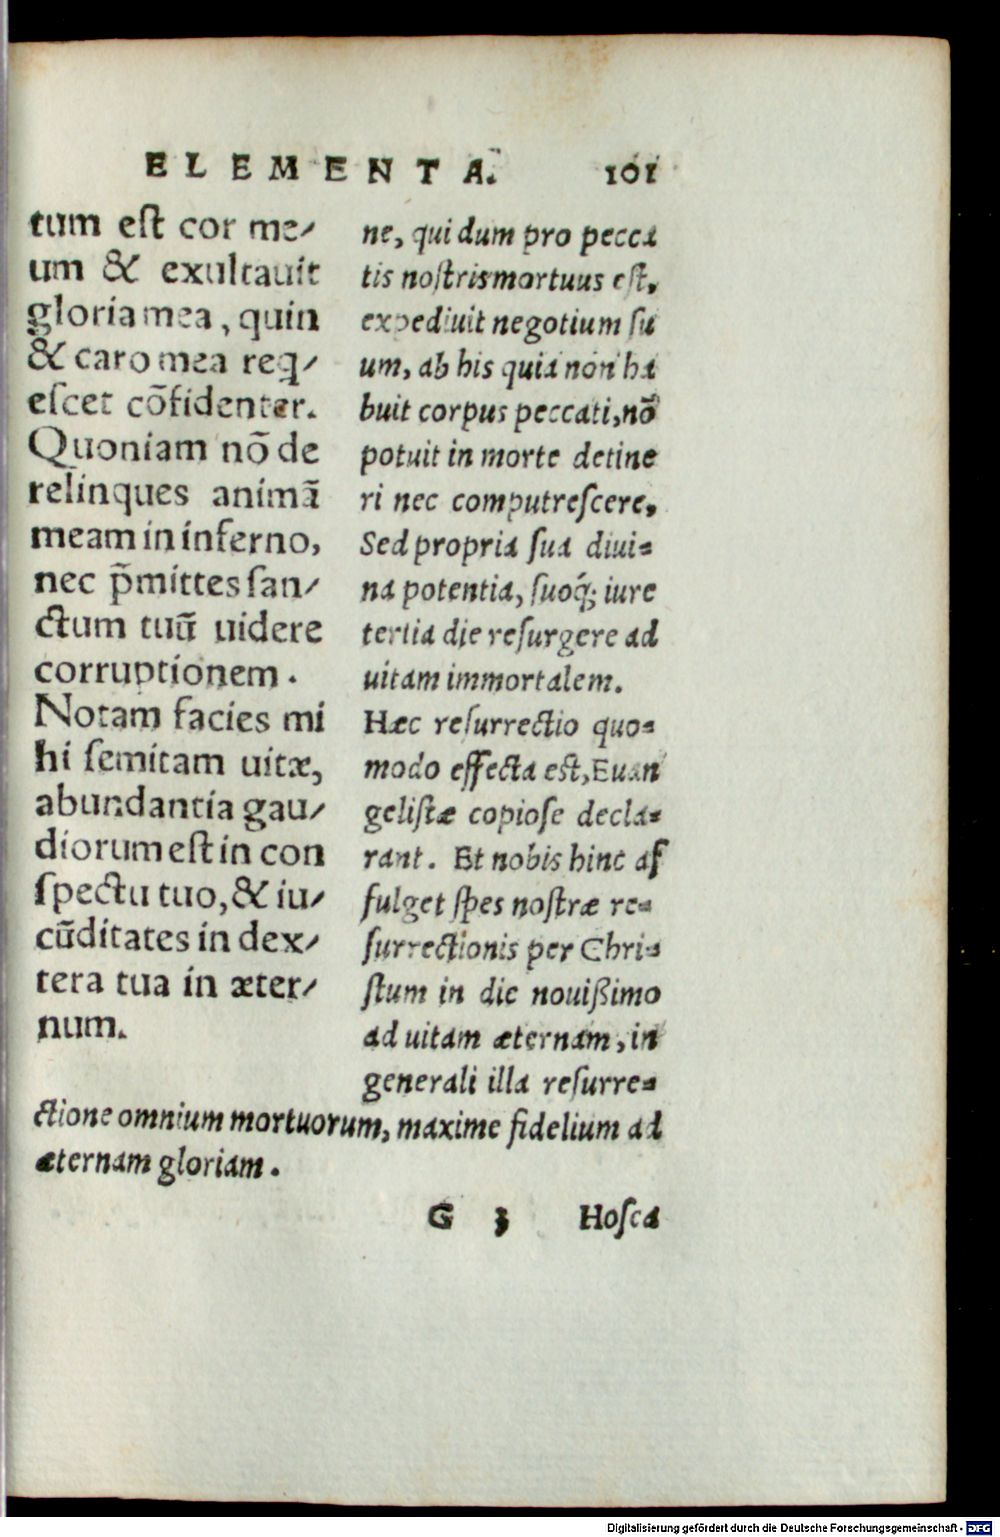 ELEMENTA. 101
tum eſt cor me⸗
um & exultauit
gloria mea, quin
& caro mea req⸗
eſcet cōfidenter.
Quoniam nō de
relinques animā
meam in inferno,
nec p̄mittes ſan⸗
ctum tuū uidere
corruptionem.
Notam facies mi
hi ſemitam uitæ,
abundantia gau⸗
diorum eſt in con
ſpectu tuo, & iu⸗
cūditates in dex⸗
tera tua in æter⸗
num.
ne, qui dum pro pecca
tis noſtris mortuus eſt,
expediuit negotium ſu
um, ab his quia non ha
buit corpus peccati, nō
potuit in morte detine
ri nec computreſcere,
Sed propria ſua diui⸗
na potentia, ſuoq́; iure
tertia die reſurgere ad
uitam immortalem.
Hæc reſurrectio quo⸗
modo effecta eſt, Euan
geliſtæ copioſe decla⸗
rant. Et nobis hinc af
fulget ſpes noſtræ re⸗
ſurrectionis per Chri⸗
ſtum in die nouißimo
ad uitam æternam, in
generali illa reſurre⸗
ctione omnium mortuorum, maxime fidelium ad
æternam gloriam.
G 3 Hoſea
Digitalisierung gefördert durch die Deutsche Forschungsgemeinschaft - DFG